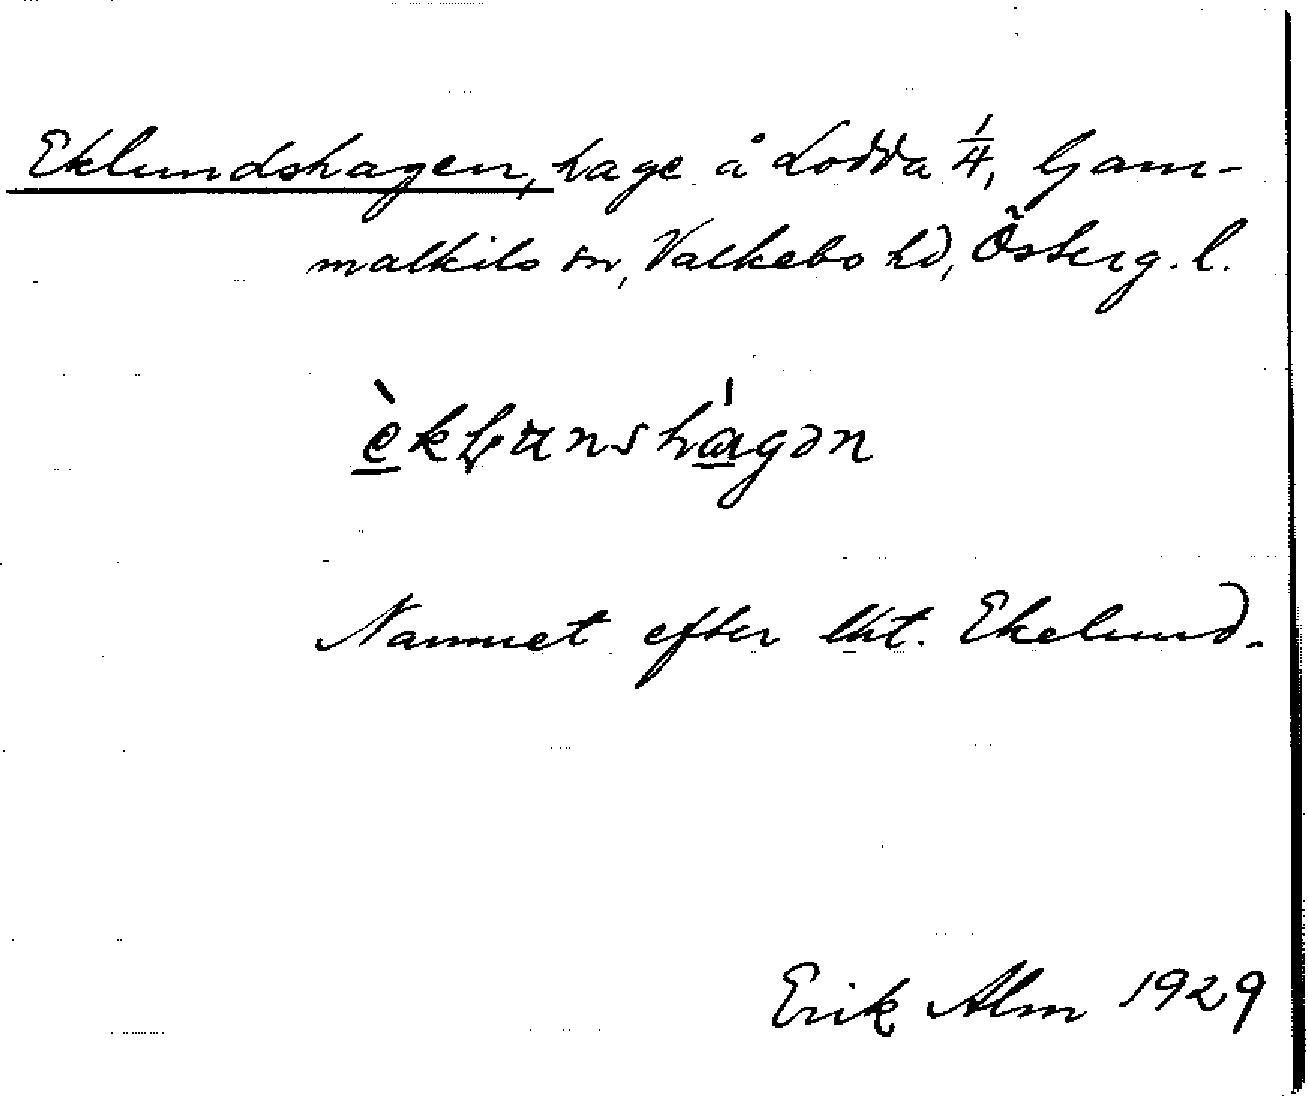 Eklundshagen, hage å Lodda 1/4, Gam-
malkils sn, Valkebo hd, Österg. l.
èkḷunshágən
Namnet efter lkt. Ekelund.
Erik Alm 1929